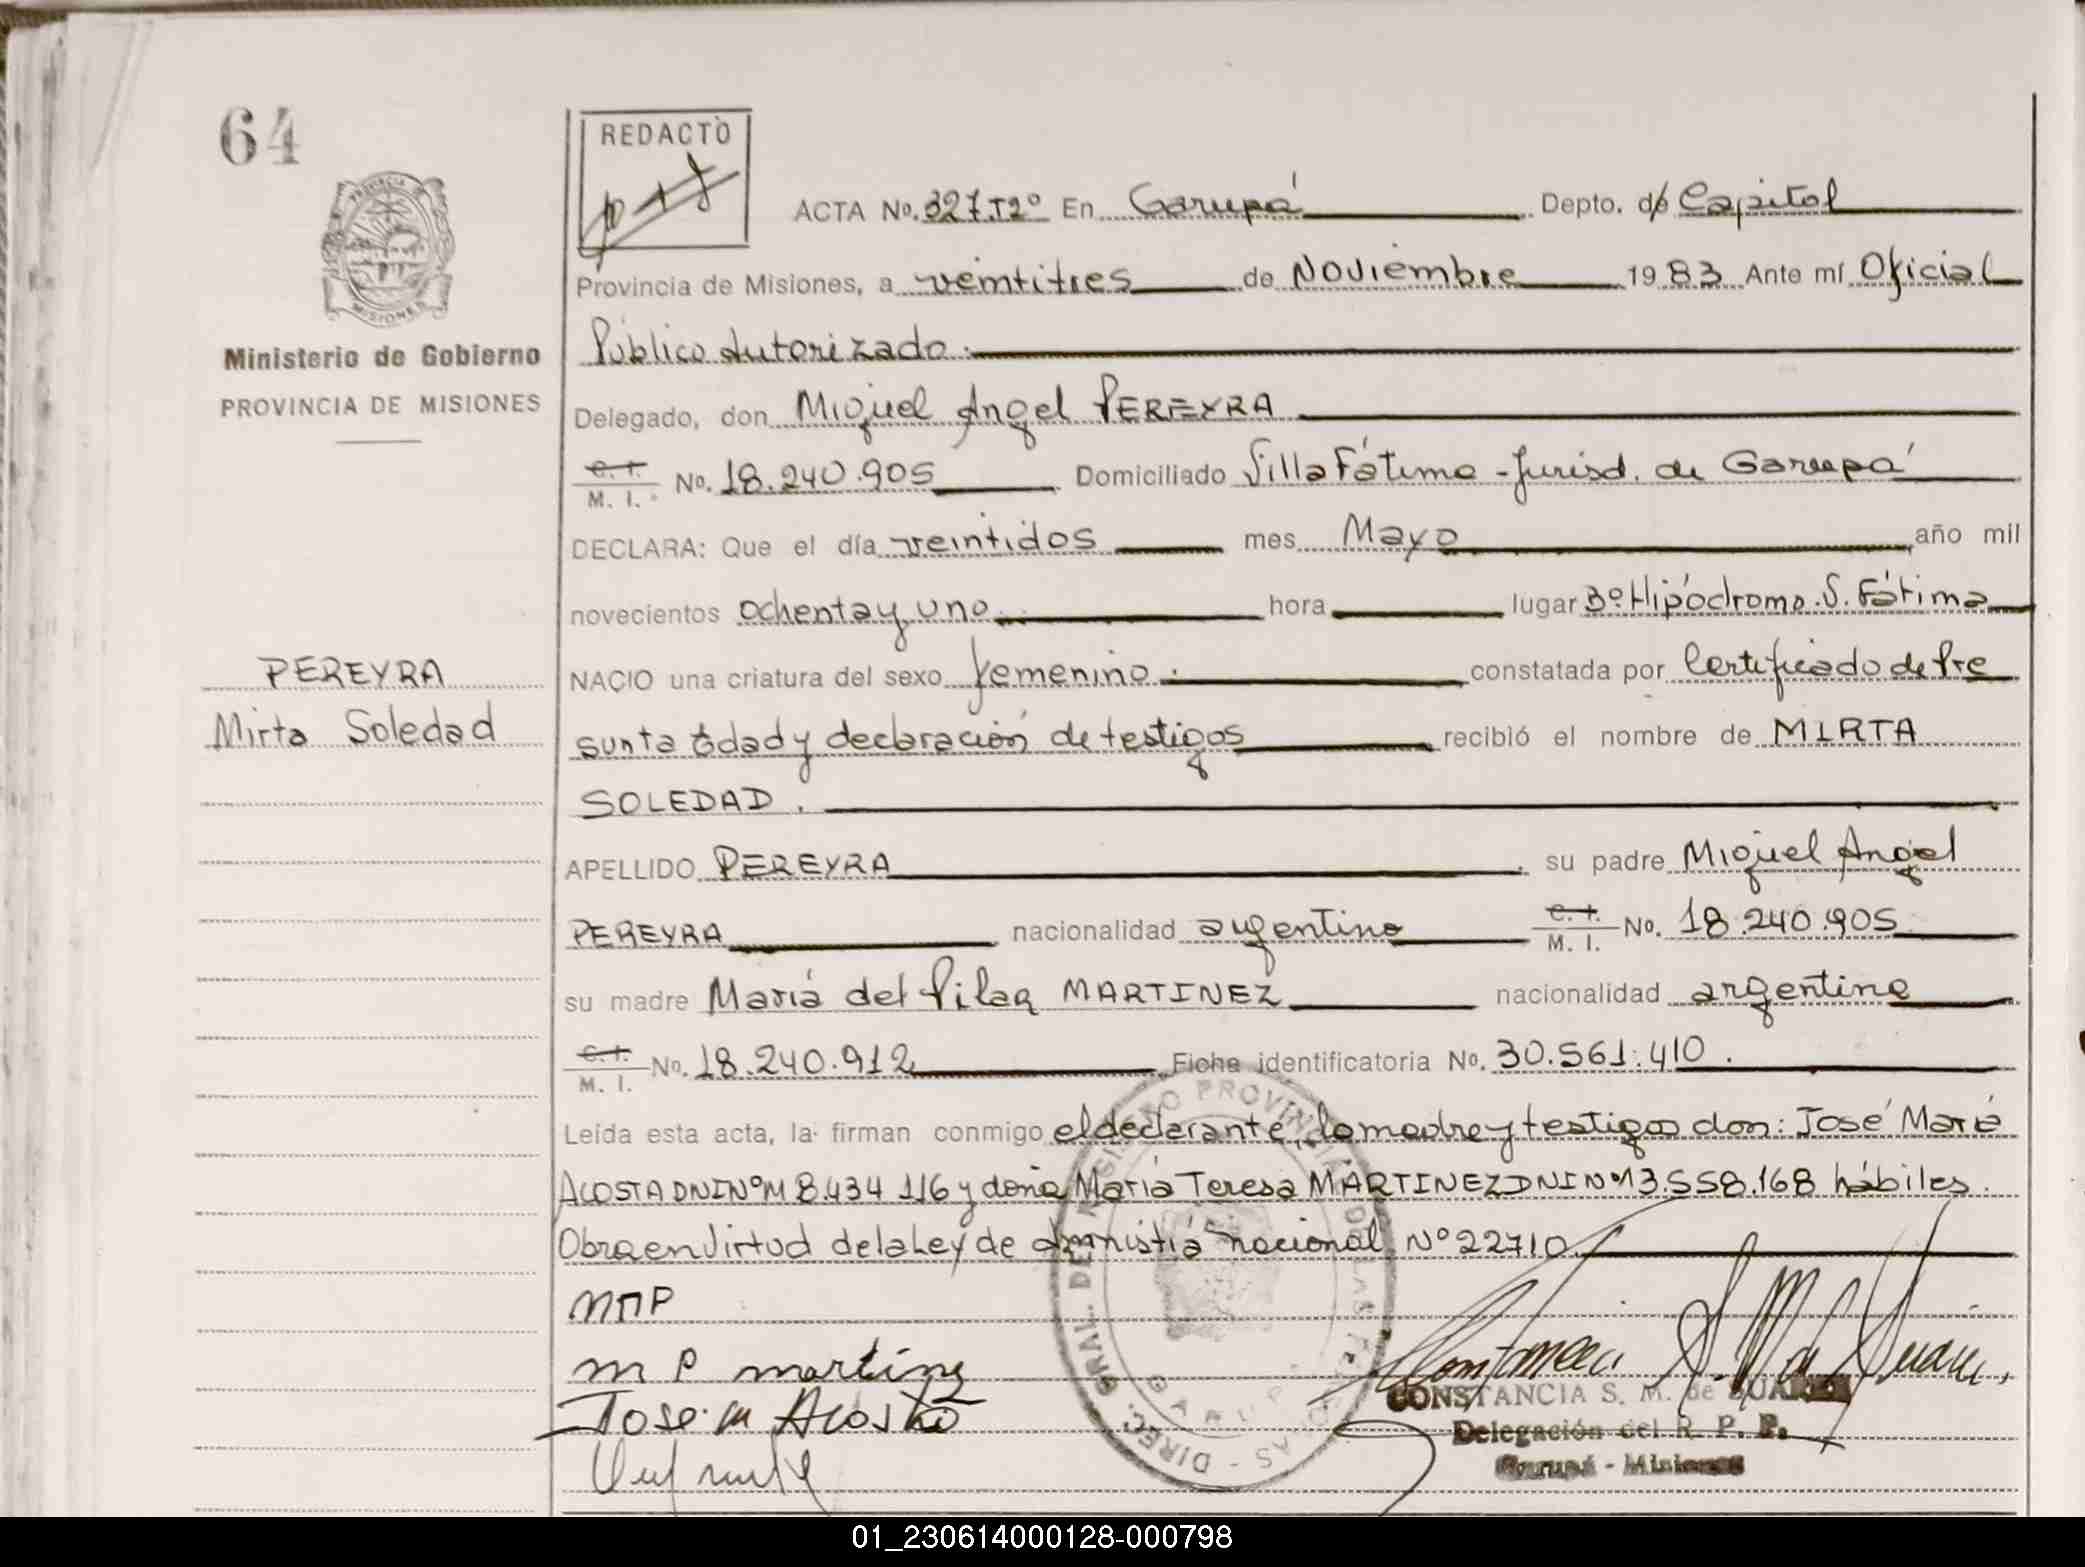 64
REDACTÒ
PROVINCIA DE
MISIONES
Ministerio de Gobierno
PROVINCIA DE MISIONES
PEREYRA
Mirta Soledad
ACTA No. 327.T2º En Garupá Depto. de Capital
Provincia de Misiones, a veintitres de Noviembre 1983 Ante mí Oficial
Público Autorizado.
Delegado, don Miguel Angel PEREYRA
C. I. M. I. No. 18.240.905 Domiciliado Villa Fátima - Jurisd. de Garupá
DECLARA: Que el día veintidos mes Mayo año mil
novecientos ochenta y uno hora lugar Bº Hipódromo. V. Fátima
NACIO una criatura del sexo femenino. constatada por Certificado de Pre
sunta Edad y declaración de testigos recibió el nombre de MIRTA
SOLEDAD.
APELLIDO PEREYRA su padre Miguel Angel
PEREYRA nacionalidad argentino C. I. M. I. No. 18.240.905
su madre María del Pilar MARTINEZ nacionalidad argentina
C. I. M. I. No. 18.240.912 Ficha identificatoria No. 30.561.410.
Leída esta acta, la firman conmigo el declarante, la madre y testigos don: José María
ACOSTA DNI Nº M 8.434.116 y doña María Teresa MARTINEZ DNI Nº 13.558.168 hábiles.
Obra en Virtud de la Ley de amnistía nacional Nº 22710
MAP
M P martinez
Jose M Acosta
DIREC. GRAL. DE REGISTRO PROVINCIAL DE LAS PERSONAS - GARUPA
CONSTANCIA S. M. de SUAREZ
Delegación del R. P. P.
Garupá - Misiones
01_230614000128-000798